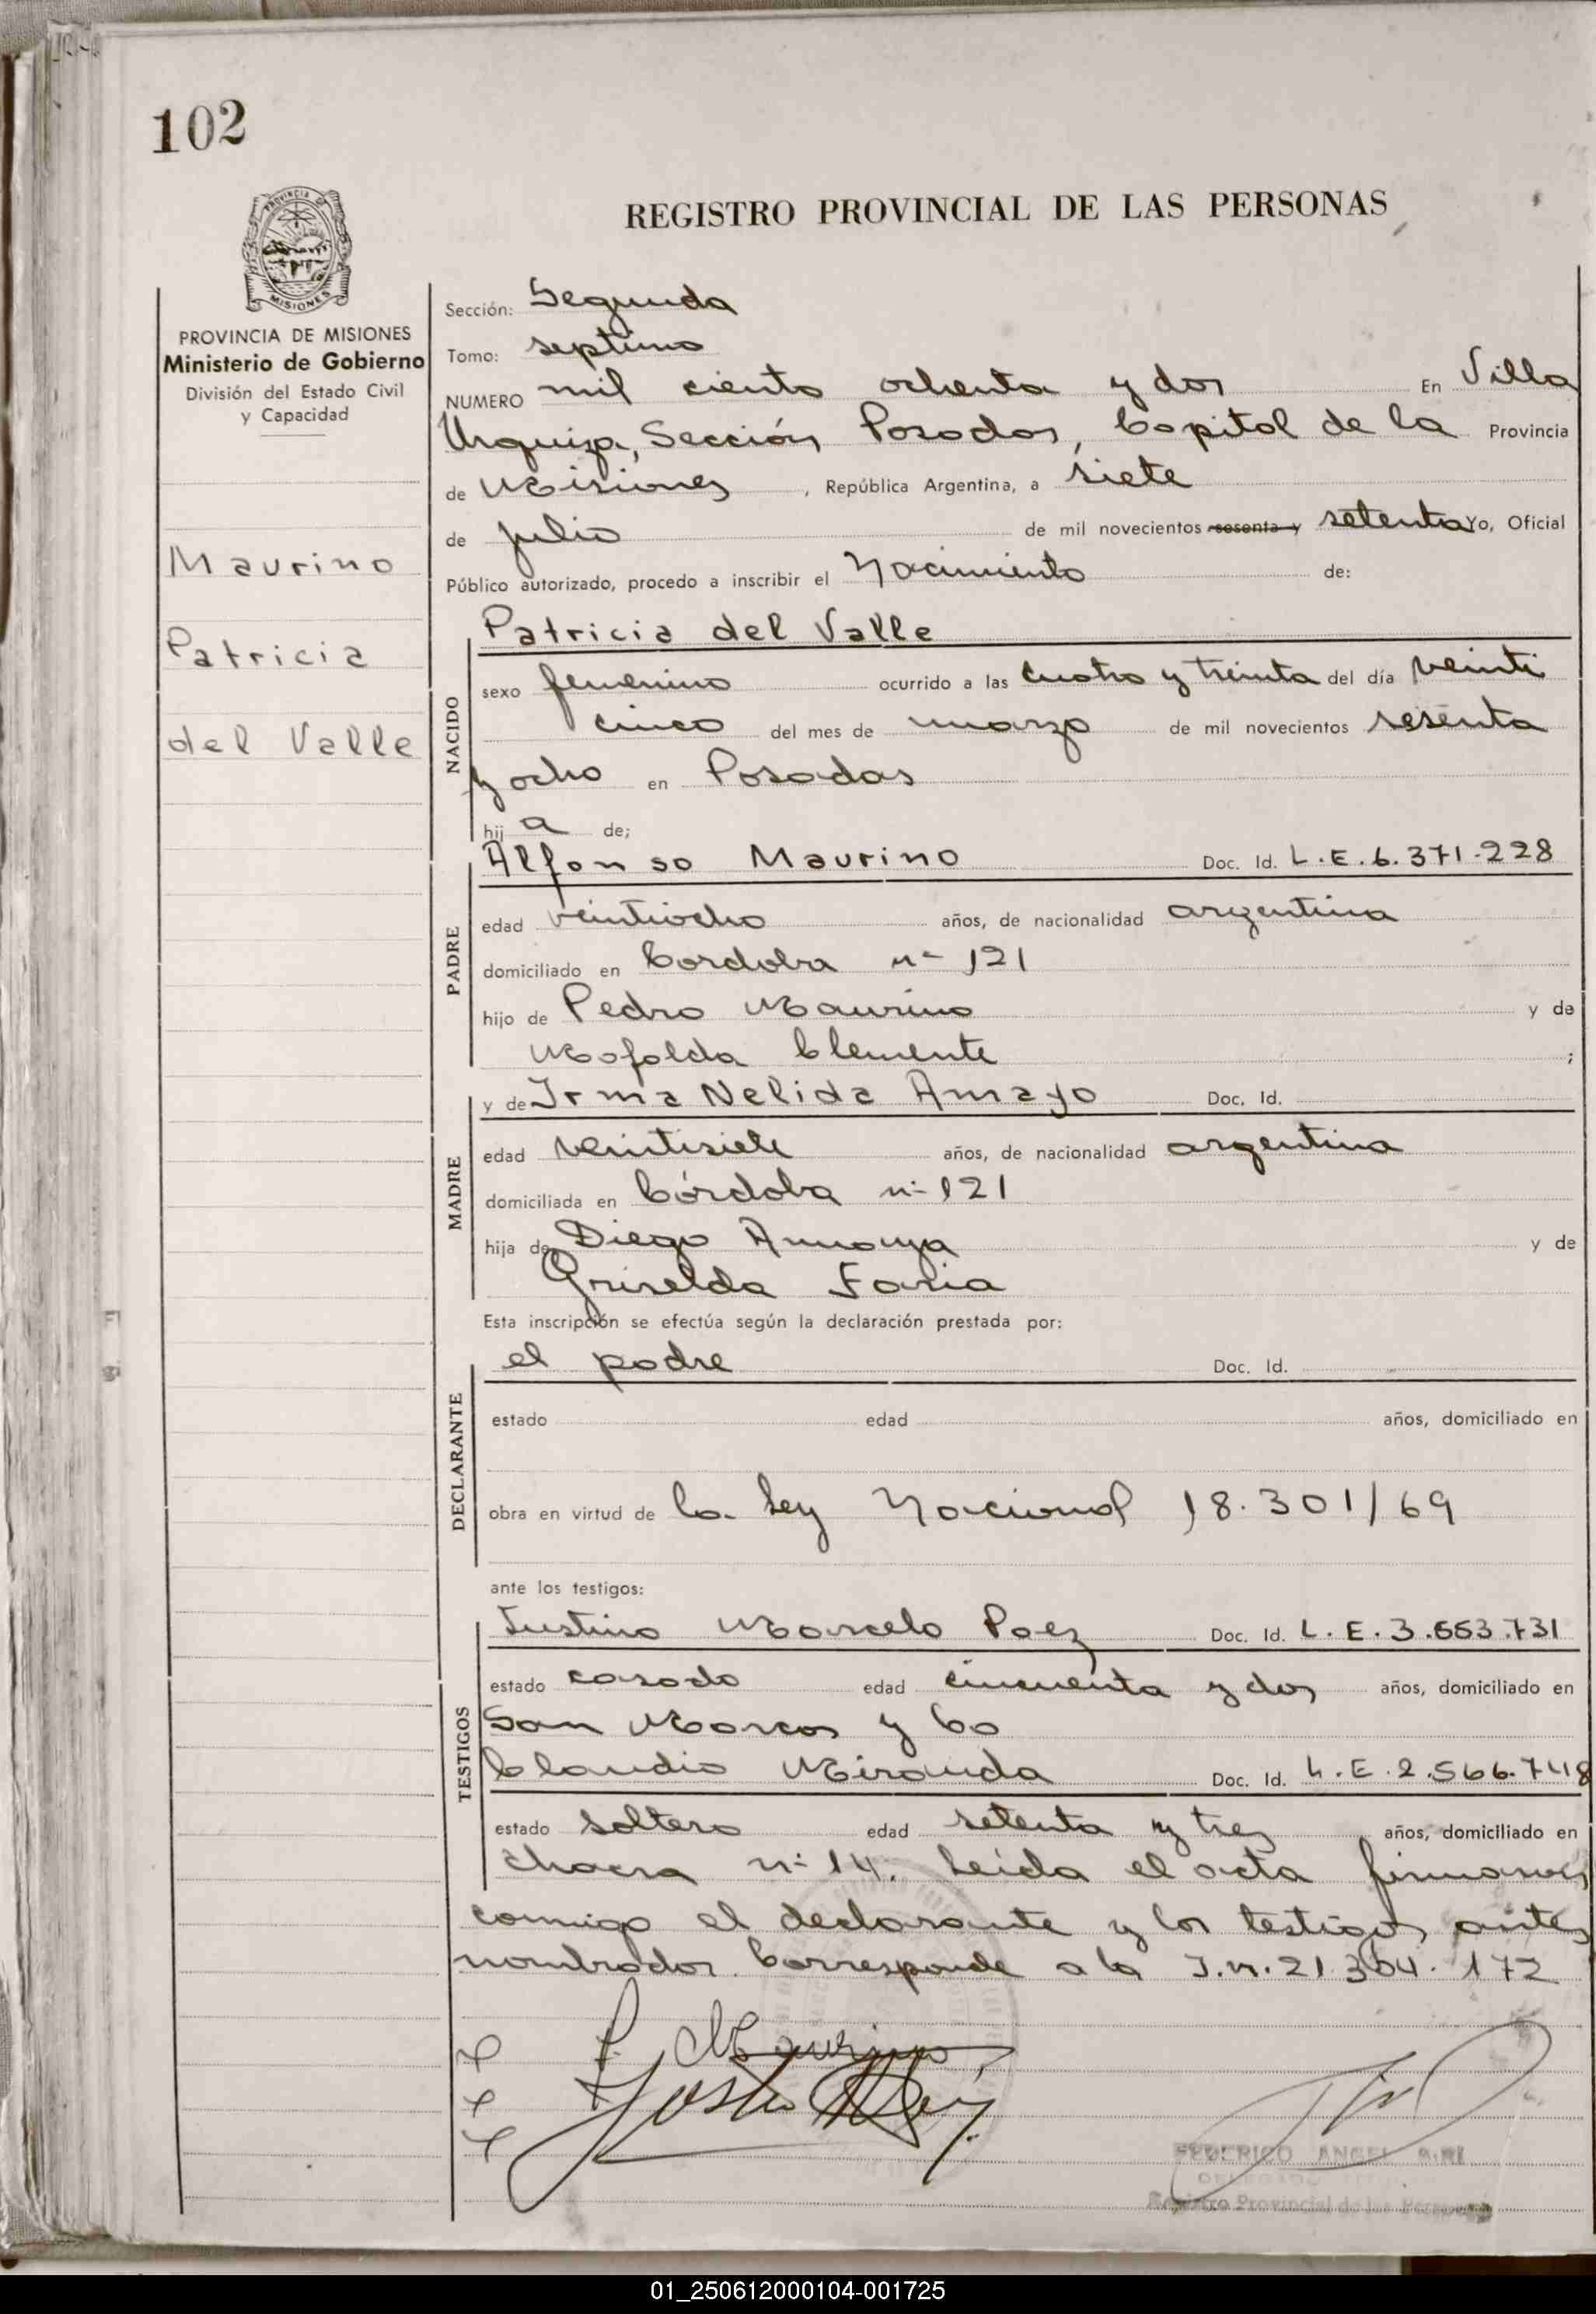 102
REGISTRO PROVINCIAL DE LAS PERSONAS
PROVINCIA
MISIONES
PROVINCIA DE MISIONES
Ministerio de Gobierno
División del Estado Civil
y Capacidad
Maurino
Patricia
del Valle
Sección: Segunda
Tomo: septimo
NUMERO mil ciento ochenta y dos En Villa
Urquiza, Sección Posadas, Capital de la Provincia
de Misiones, República Argentina, a siete
de julio de mil novecientos sesenta y setenta Yo, Oficial
Público autorizado, procedo a inscribir el Nacimiento de:
NACIDO
Patricia del Valle
sexo femenino ocurrido a las cuatro y treinta del día veinti
cinco del mes de marzo de mil novecientos sesenta
y ocho en Posadas
hij a de;
PADRE
Alfonso Maurino Doc. Id. L.E.6.371.228
edad veintiocho años, de nacionalidad argentina
domiciliado en Cordoba nº 121
hijo de Pedro Maurino y de
Mofalda Clemente ;
MADRE
y de Irma Nelida Amayo Doc. Id.
edad veintisiete años, de nacionalidad argentina
domiciliada en Córdoba nº 121
hija de Diego Amaya y de
Griselda Faria
Esta inscripción se efectúa según la declaración prestada por:
DECLARANTE
el padre Doc. Id.
estado edad años, domiciliado en
obra en virtud de la Ley Nacional 18.301/69
ante los testigos:
TESTIGOS
Justino Marcelo Paez Doc. Id. L.E.3.553.731
estado casado edad cincuenta y dos años, domiciliado en
San Marcos y 60
Claudio Miranda Doc. Id. L.E.2.566.748
estado soltero edad setenta y tres años, domiciliado en
chacra nº 14. Leida el acta firmaron
comigo el declarante y los testigos antes
nombrados. Corresponde a la I.n.21.364.172
Maurino
FEDERICO ANGEL
Registro Provincial de las Personas
01_250612000104-001725